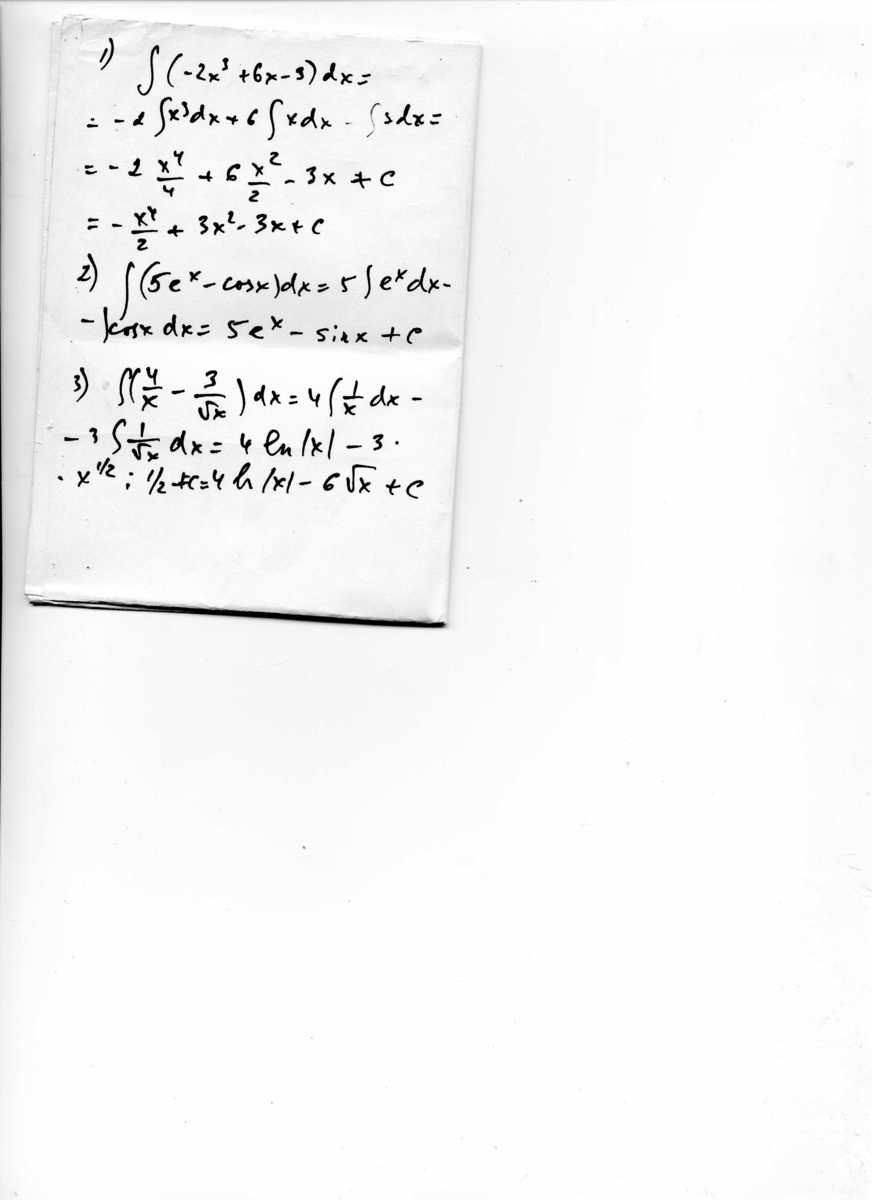 1) ∫(-2x³+6x-3)dx=
= -2∫x³dx+6∫xdx-∫3dx=
=-2 x⁴/4 + 6 x²/2 - 3x + C
= - x⁴/2 + 3x²-3x+C
2) ∫(5eˣ-cosx)dx=5∫eˣdx-
-∫cosx dx= 5eˣ- sinx +C
3) ∫(4/x - 3/√x)dx=4∫1/x dx-
-3∫1/√x dx= 4 ln|x| - 3·
·x^1/2 : 1/2 +C=4 ln|x| - 6√x +C